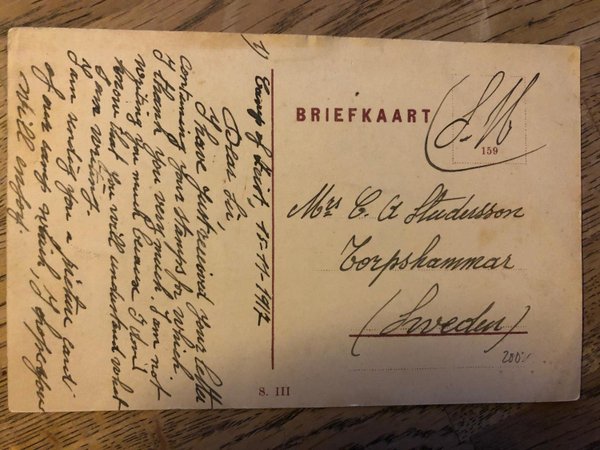 1) Camp of Zeist, 15-11-1917
Dear Sir
I have just received your letter
containing your stamps for which
I thank you very much. I am not
writing you much because I don't
know that you will understand what
I am writing.
I am sending you a picture card
of our camp which, I suppose you
will enjoy.
BRIEFKAART
S.M
159
Mrs C A Studersson
Torpshammar
(Sweden)
S. III